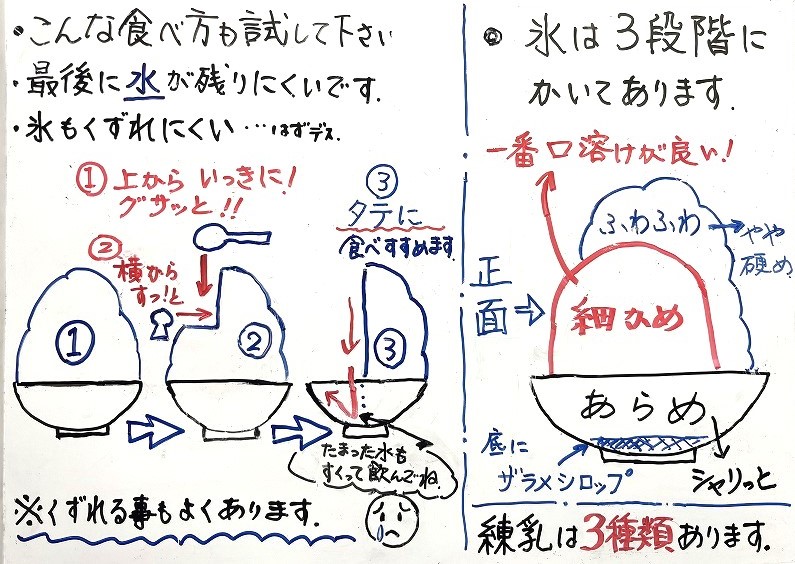 ・こんな食べ方も試して下さい
・最後に水が残りにくいです.
・氷もくずれにくい…はずデス.
① 上から いっきに!
グサッと!!
② 横から
すっ!と
③
タテに
食べすすめます.
①
②
③
たまった水も
すくって飲んでね.
※くずれる事もよくあります.
◎ 氷は3段階に
かいてあります.
一番口溶けが良い!
ふわふわ→やや
硬め.
正面⇒
細かめ
あらめ
底に
ザラメシロップ
シャリっと
練乳は3種類あります.